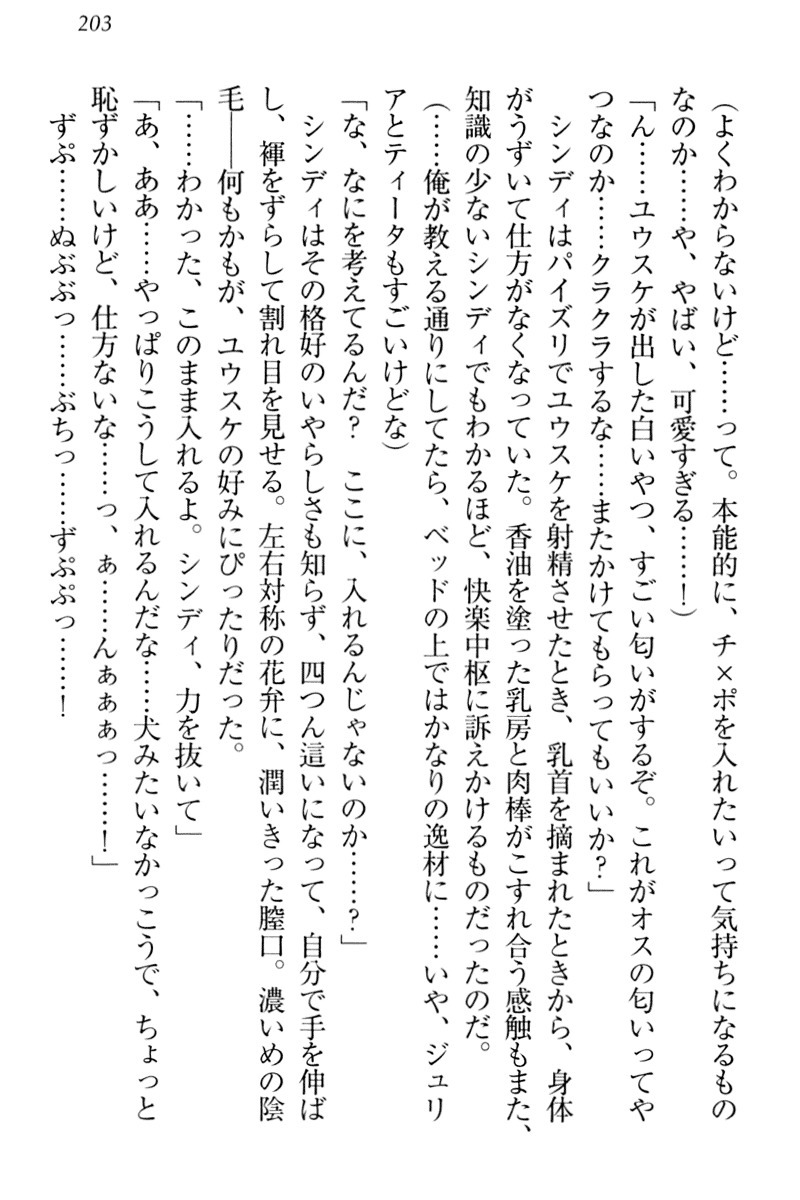 203
(よくわからないけど……って。本能的に、チ×ポを入れたいって気持ちになるもの
なのか……や、やばい、可愛すぎる……!)
「ん……ユウスケが出した白いやつ、すごい匂いがするぞ。これがオスの匂いってや
つなのか……クラクラするな……またかけてもらってもいいか?」
　シンディはパイズリでユウスケを射精させたとき、乳首を摘まれたときから、身体
がうずいて仕方がなくなっていた。香油を塗った乳房と肉棒がこすれ合う感触もまた、
知識の少ないシンディでもわかるほど、快楽中枢に訴えかけるものだったのだ。
(……俺が教える通りにしてたら、ベッドの上ではかなりの逸材に……いや、ジュリ
アとティータもすごいけどな)
「な、なにを考えてるんだ?　ここに、入れるんじゃないのか……?」
　シンディはその格好のいやらしさも知らず、四つん這いになって、自分で手を伸ば
し、褌をずらして割れ目を見せる。左右対称の花弁に、潤いきった膣口。濃いめの陰
毛――何もかもが、ユウスケの好みにぴったりだった。
「……わかった、このまま入れるよ。シンディ、力を抜いて」
「あ、ああ……やっぱりこうして入れるんだな……犬みたいなかっこうで、ちょっと
恥ずかしいけど、仕方ないな……っ、ぁ……んぁぁぁっ……!」
　ずぷ……ぬぶぶっ……ぶちっ……ずぷぷっ……!